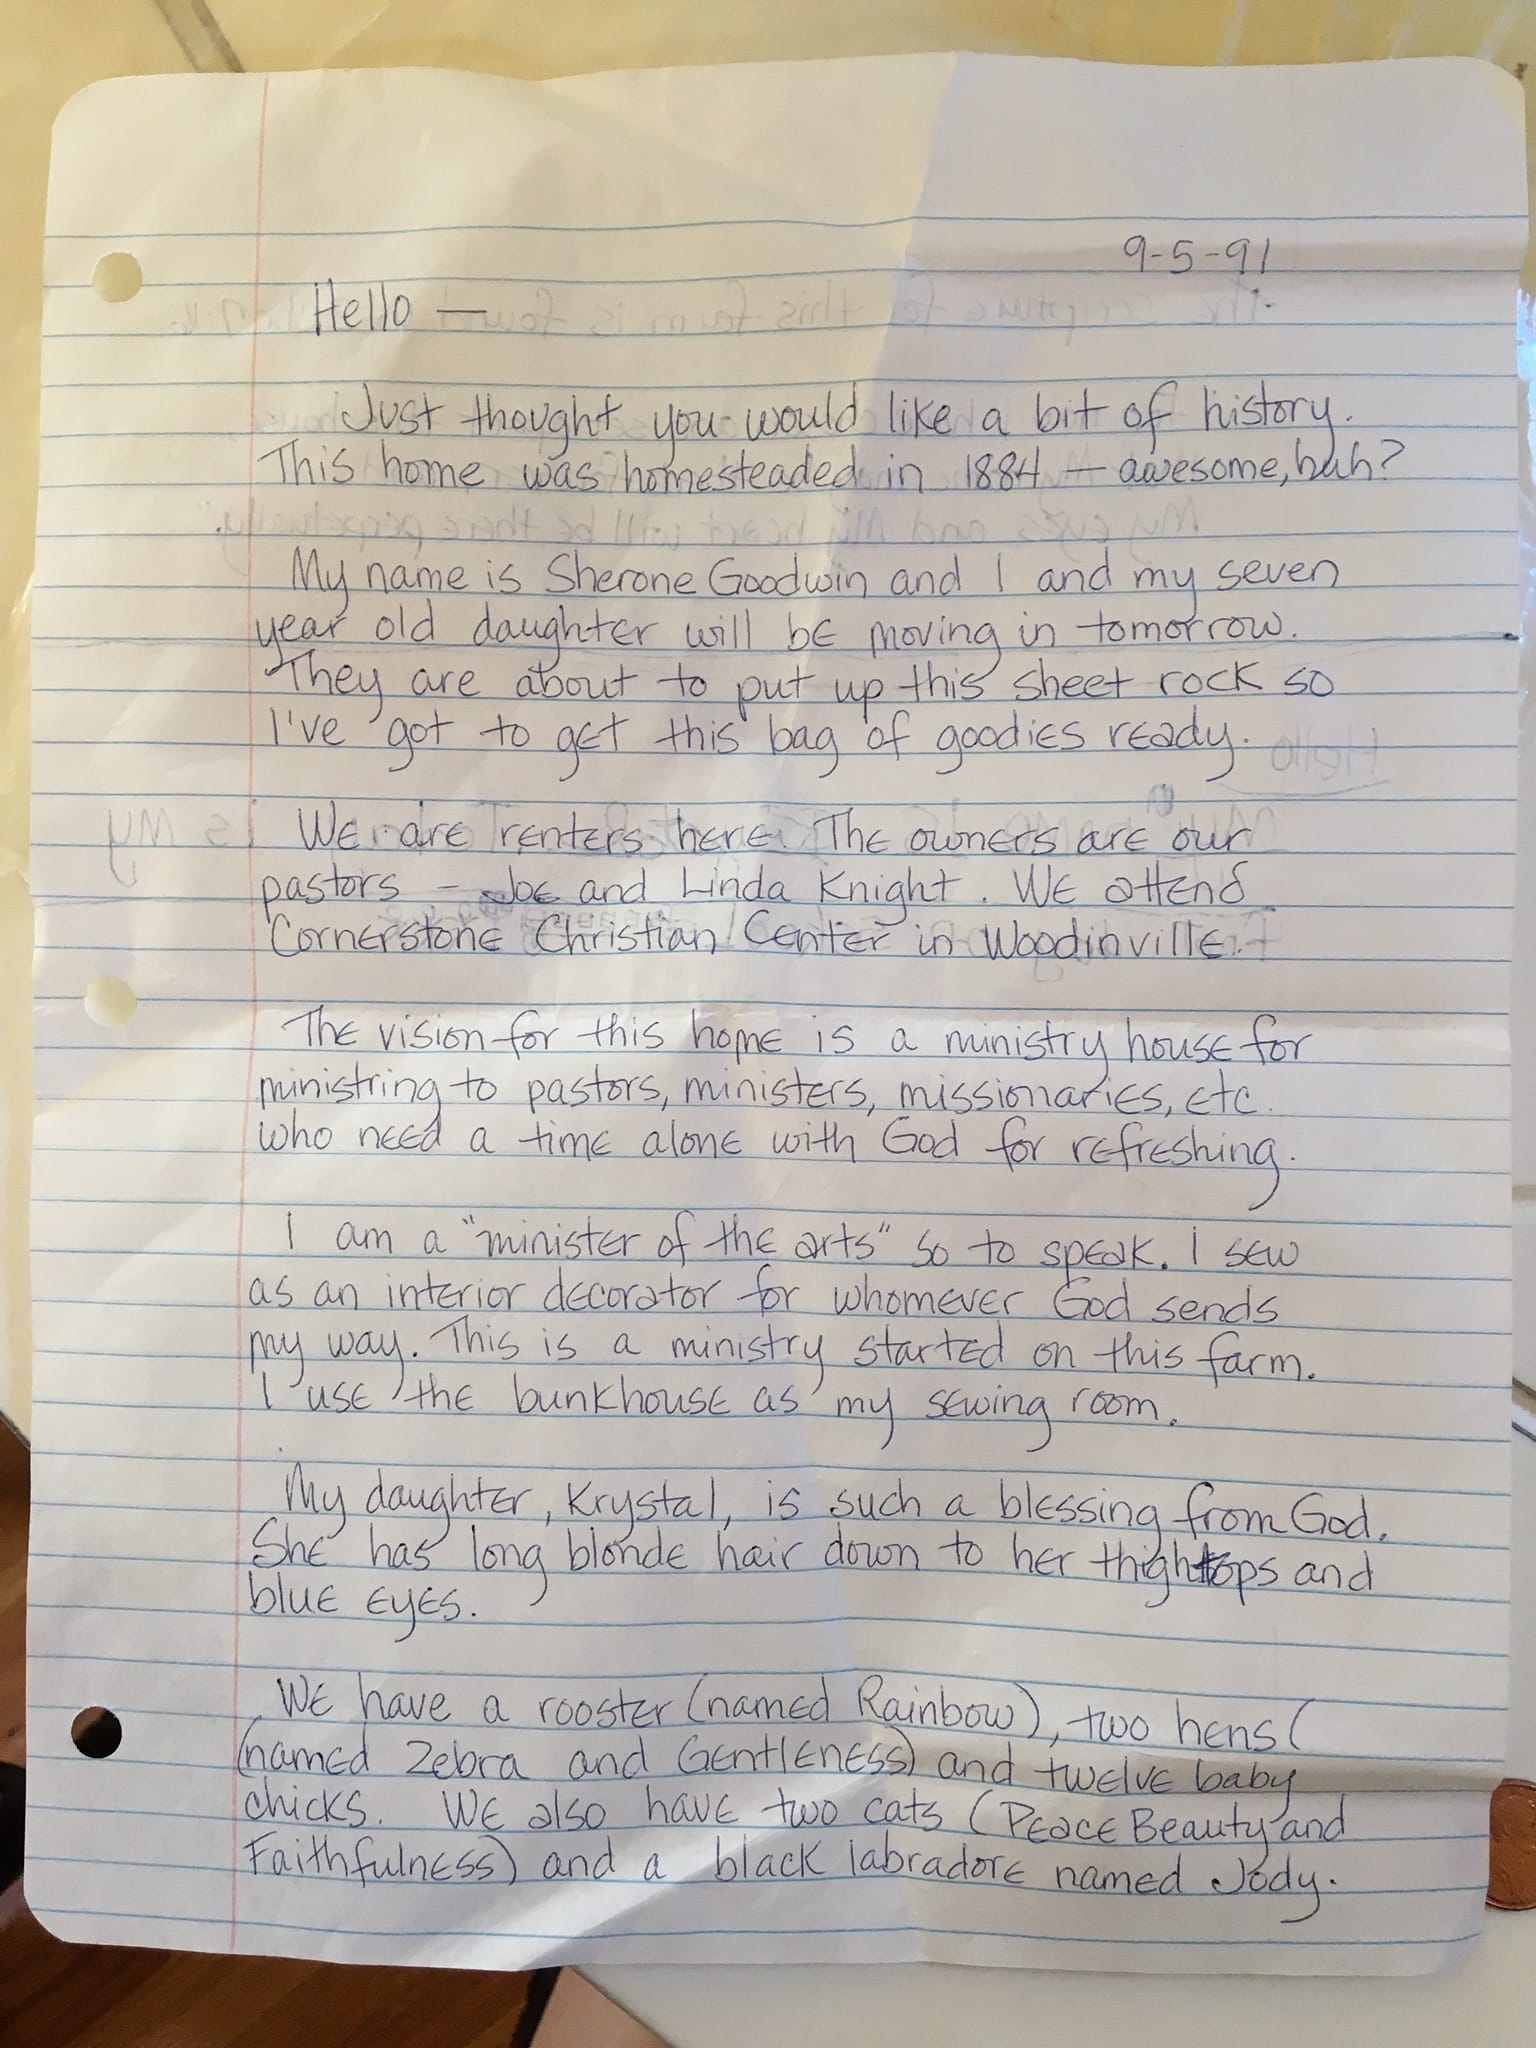 9-5-91
Hello —
Just thought you would like a bit of history.
This home was homesteaded in 1884 — awesome, huh?
My name is Sherone Goodwin and I and my seven
year old daughter will be moving in tomorrow.
They are about to put up this sheet rock so
I've got to get this bag of goodies ready.
We are renters here. The owners are our
pastors - Joe and Linda Knight. We attend
Cornerstone Christian Center in Woodinville.
The vision for this home is a ministry house for
ministring to pastors, ministers, missionaries, etc.
who need a time alone with God for refreshing.
I am a "minister of the arts" so to speak. I sew
as an interior decorator for whomever God sends
my way. This is a ministry started on this farm.
I use the bunkhouse as my sewing room.
My daughter, Krystal, is such a blessing from God.
She has long blonde hair down to her thightops and
blue eyes.
We have a rooster (named Rainbow), two hens (
(named Zebra and Gentleness) and twelve baby
chicks. We also have two cats (Peace Beauty and
Faithfulness) and a black labradore named Jody.